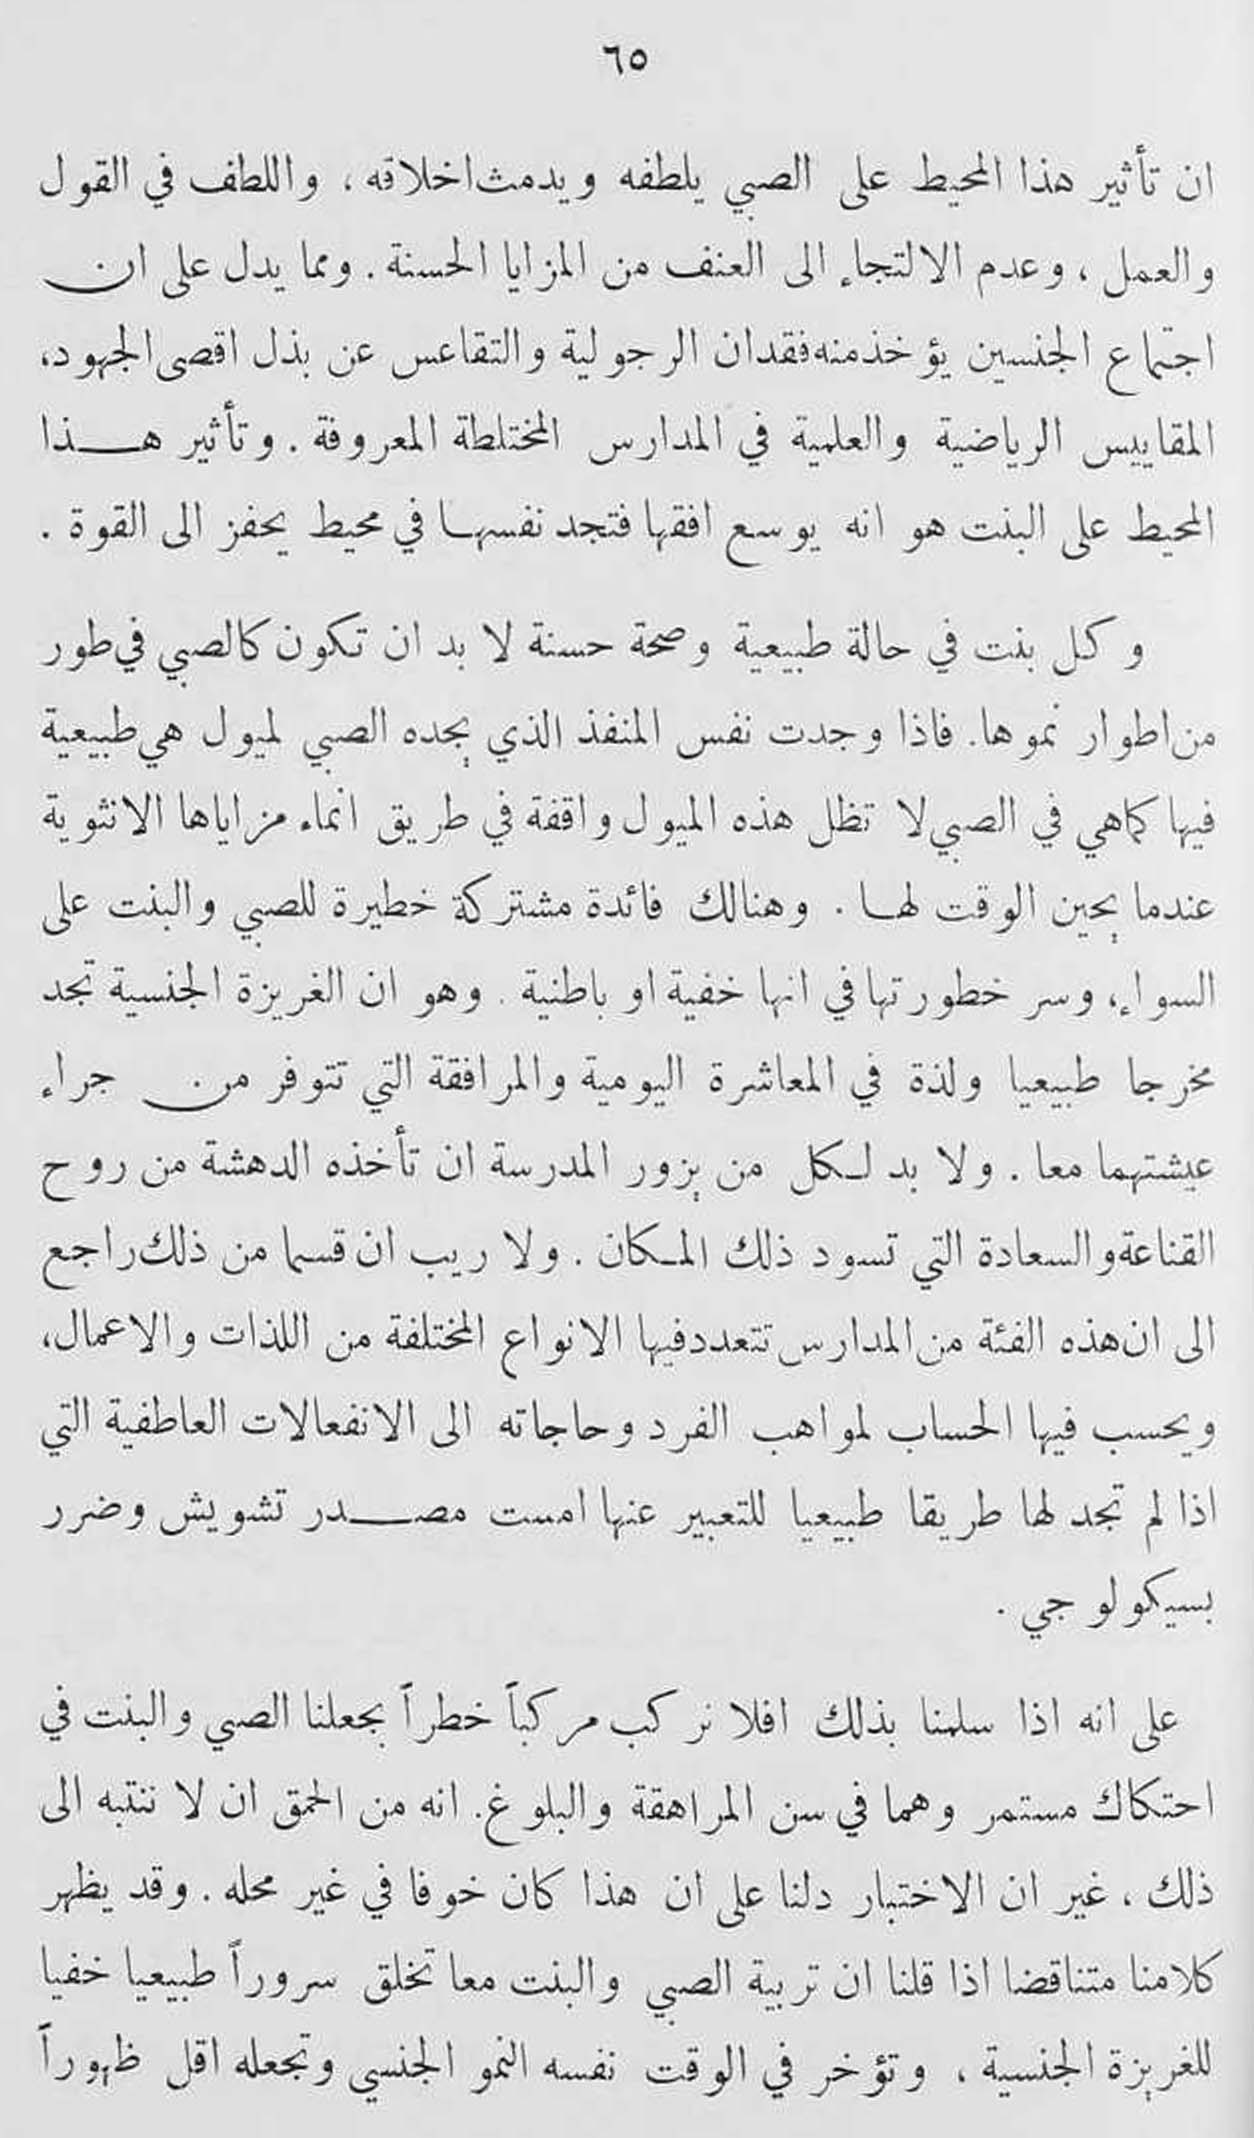 ٦٥
ان تأثير هذا المحيط على الصبي يلطفه ويدمث اخلاقه ، واللطف في القول
والعمل ، وعدم الالتجاء الى العنف من المزايا الحسنة . ومما يدل على ان
اجتماع الجنسين يؤخذ منه فقدان الرجولية والتقاعس عن بذل اقصى الجهود،
المقاييس الرياضية والعلمية في المدارس المختلطة المعروفة . وتأثير هــذا
المحيط على البنت هو انه يوسع افقها فتجد نفسهـا في محيط يحفز الى القوة .
وكل بنت في حالة طبيعية وصحة حسنة لا بد ان تكون كالصبي في طور
من اطوار نموها. فاذا وجدت نفس المنفذ الذي يجده الصبي لميول هي طبيعية
فيها كماهي في الصبي لا تظل هذه الميول واقفة في طريق انماء مزاياها الانثوية
عندما يحين الوقت لهـا . وهنالك فائدة مشتركة خطيرة للصبي والبنت على
السواء، وسر خطورتها في انها خفية او باطنية . وهو ان الغريزة الجنسية تجد
مخرجا طبيعيا ولذة في المعاشرة اليومية والمرافقة التي تتوفر من جراء
عيشتهما معا . ولا بد لـكل من يزور المدرسة ان تأخذه الدهشة من روح
القناعة والسعادة التي تسود ذلك المـكان . ولا ريب ان قسما من ذلك راجع
الى ان هذه الفئة من المدارس تتعدد فيها الانواع المختلفة من اللذات والاعمال،
ويحسب فيها الحساب لمواهب الفرد وحاجاته الى الانفعالات العاطفية التي
اذا لم تجد لها طريقا طبيعيا للتعبير عنها امست مصـــدر تشويش وضرر
بسيكولوجي .
على انه اذا سلمنا بذلك افلا نركب مركباً خطراً بجعلنا الصبي والبنت في
احتكاك مستمر وهما في سن المراهقة والبلوغ. انه من الحمق ان لا ننتبه الى
ذلك ، غير ان الاختبار دلنا على ان هذا كان خوفا في غير محله . وقد يظهر
كلامنا متناقضا اذا قلنا ان تربية الصبي والبنت معا تخلق سروراً طبيعيا خفيا
للغريزة الجنسية ، وتؤخر في الوقت نفسه النمو الجنسي وتجعله اقل ظهوراً